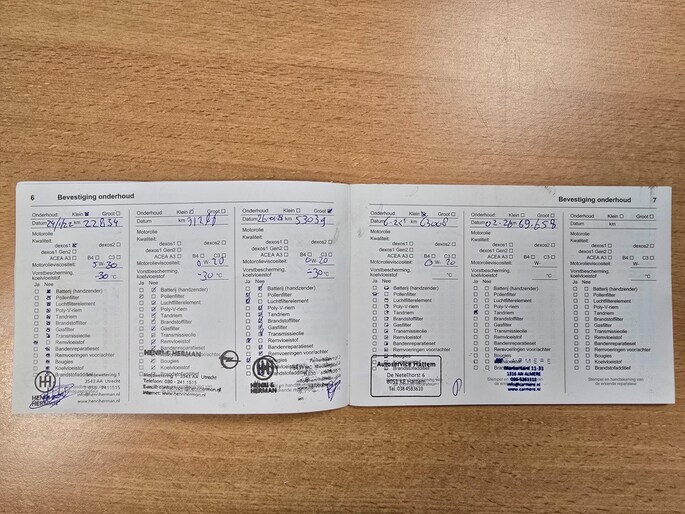 6 Bevestiging onderhoud
Onderhoud: Klein Groot
Datum km 22834
Motorolie
Kwaliteit:
dexos1 dexos2
dexos1 Gen2
ACEA A3 B4 C3
Motorolieviscositeit: 5 W- 30
Vorstbescherming,
koelvloeistof -30 °C
Ja Nee
Batterij (handzender)
Pollenfilter
Luchtfilterelement
Poly-V-riem
Tandriem
Brandstoffilter
Gasfilter
Transmissieolie
Remvloeistof
Bandenreparatieset
Remvoeringen voor/achter
Bougies
Koelvloeistof
3543 AR Utrecht
030 - 241 1515
www.hemi-herman.nl
Onderhoud: Klein Groot
Datum km
Motorolie
Kwaliteit:
dexos1 dexos2
dexos1 Gen2
ACEA A3 B4 C3
Motorolieviscositeit: 0 W- 20
Vorstbescherming,
koelvloeistof -30 °C
Ja Nee
Batterij (handzender)
Pollenfilter
Luchtfilterelement
Poly-V-riem
Tandriem
Brandstoffilter
Gasfilter
Transmissieolie
Remvloeistof
Bandenreparatieset
Utrecht
Telefoon: 030 - 241 1515
Onderhoud: Klein Groot
Datum km 53031
Motorolie
Kwaliteit:
dexos1 dexos2
dexos1 Gen2
ACEA A3 B4 C3
Motorolieviscositeit: 0 W- 20
Vorstbescherming,
koelvloeistof -30 °C
Ja Nee
Batterij (handzender)
Pollenfilter
Luchtfilterelement
Poly-V-riem
Tandriem
Brandstoffilter
Gasfilter
Transmissieolie
Remvloeistof
Bandenreparatieset
Remvoeringen voor/achter
HERMAN
Bevestiging onderhoud 7
Onderhoud: Klein Groot
Datum km 63008
Motorolie
Kwaliteit:
dexos1 dexos2
dexos1 Gen2
ACEA A3 B4 C3
Motorolieviscositeit: 0 W- 20
Vorstbescherming,
koelvloeistof °C
Ja Nee
Batterij (handzender)
Pollenfilter
Luchtfilterelement
Poly-V-riem
Tandriem
Brandstoffilter
Gasfilter
Transmissieolie
Remvloeistof
Bandenreparatieset
Remvoeringen voor/achter
Autoservice Hattem
De Netelhorst 6
8051 KE Hattem
Tel. 038 4583610
Onderhoud: Klein Groot
Datum km 69.658
Motorolie
Kwaliteit:
dexos1 dexos2
dexos1 Gen2
ACEA A3 B4 C3
Motorolieviscositeit: W-
Vorstbescherming,
koelvloeistof °C
Ja Nee
Batterij (handzender)
Pollenfilter
Luchtfilterelement
Poly-V-riem
Tandriem
Brandstoffilter
Gasfilter
Transmissieolie
Remvloeistof
Bandenreparatieset
Remvoeringen voor/achter
Bougies
Markerkant 11-31
1316 AN ALMERE
info@carmere.nl
www.carmere.nl
Onderhoud: Klein Groot
Datum km
Motorolie
Kwaliteit:
dexos1 dexos2
dexos1 Gen2
ACEA A3 B4 C3
Motorolieviscositeit: W-
Vorstbescherming,
koelvloeistof °C
Ja Nee
Batterij (handzender)
Pollenfilter
Luchtfilterelement
Poly-V-riem
Tandriem
Brandstoffilter
Gasfilter
Transmissieolie
Remvloeistof
Bandenreparatieset
Remvoeringen voor/achter
Bougies
Koelvloeistof
Brandstofadditief
Stempel en handtekening van
de erkende reparateur